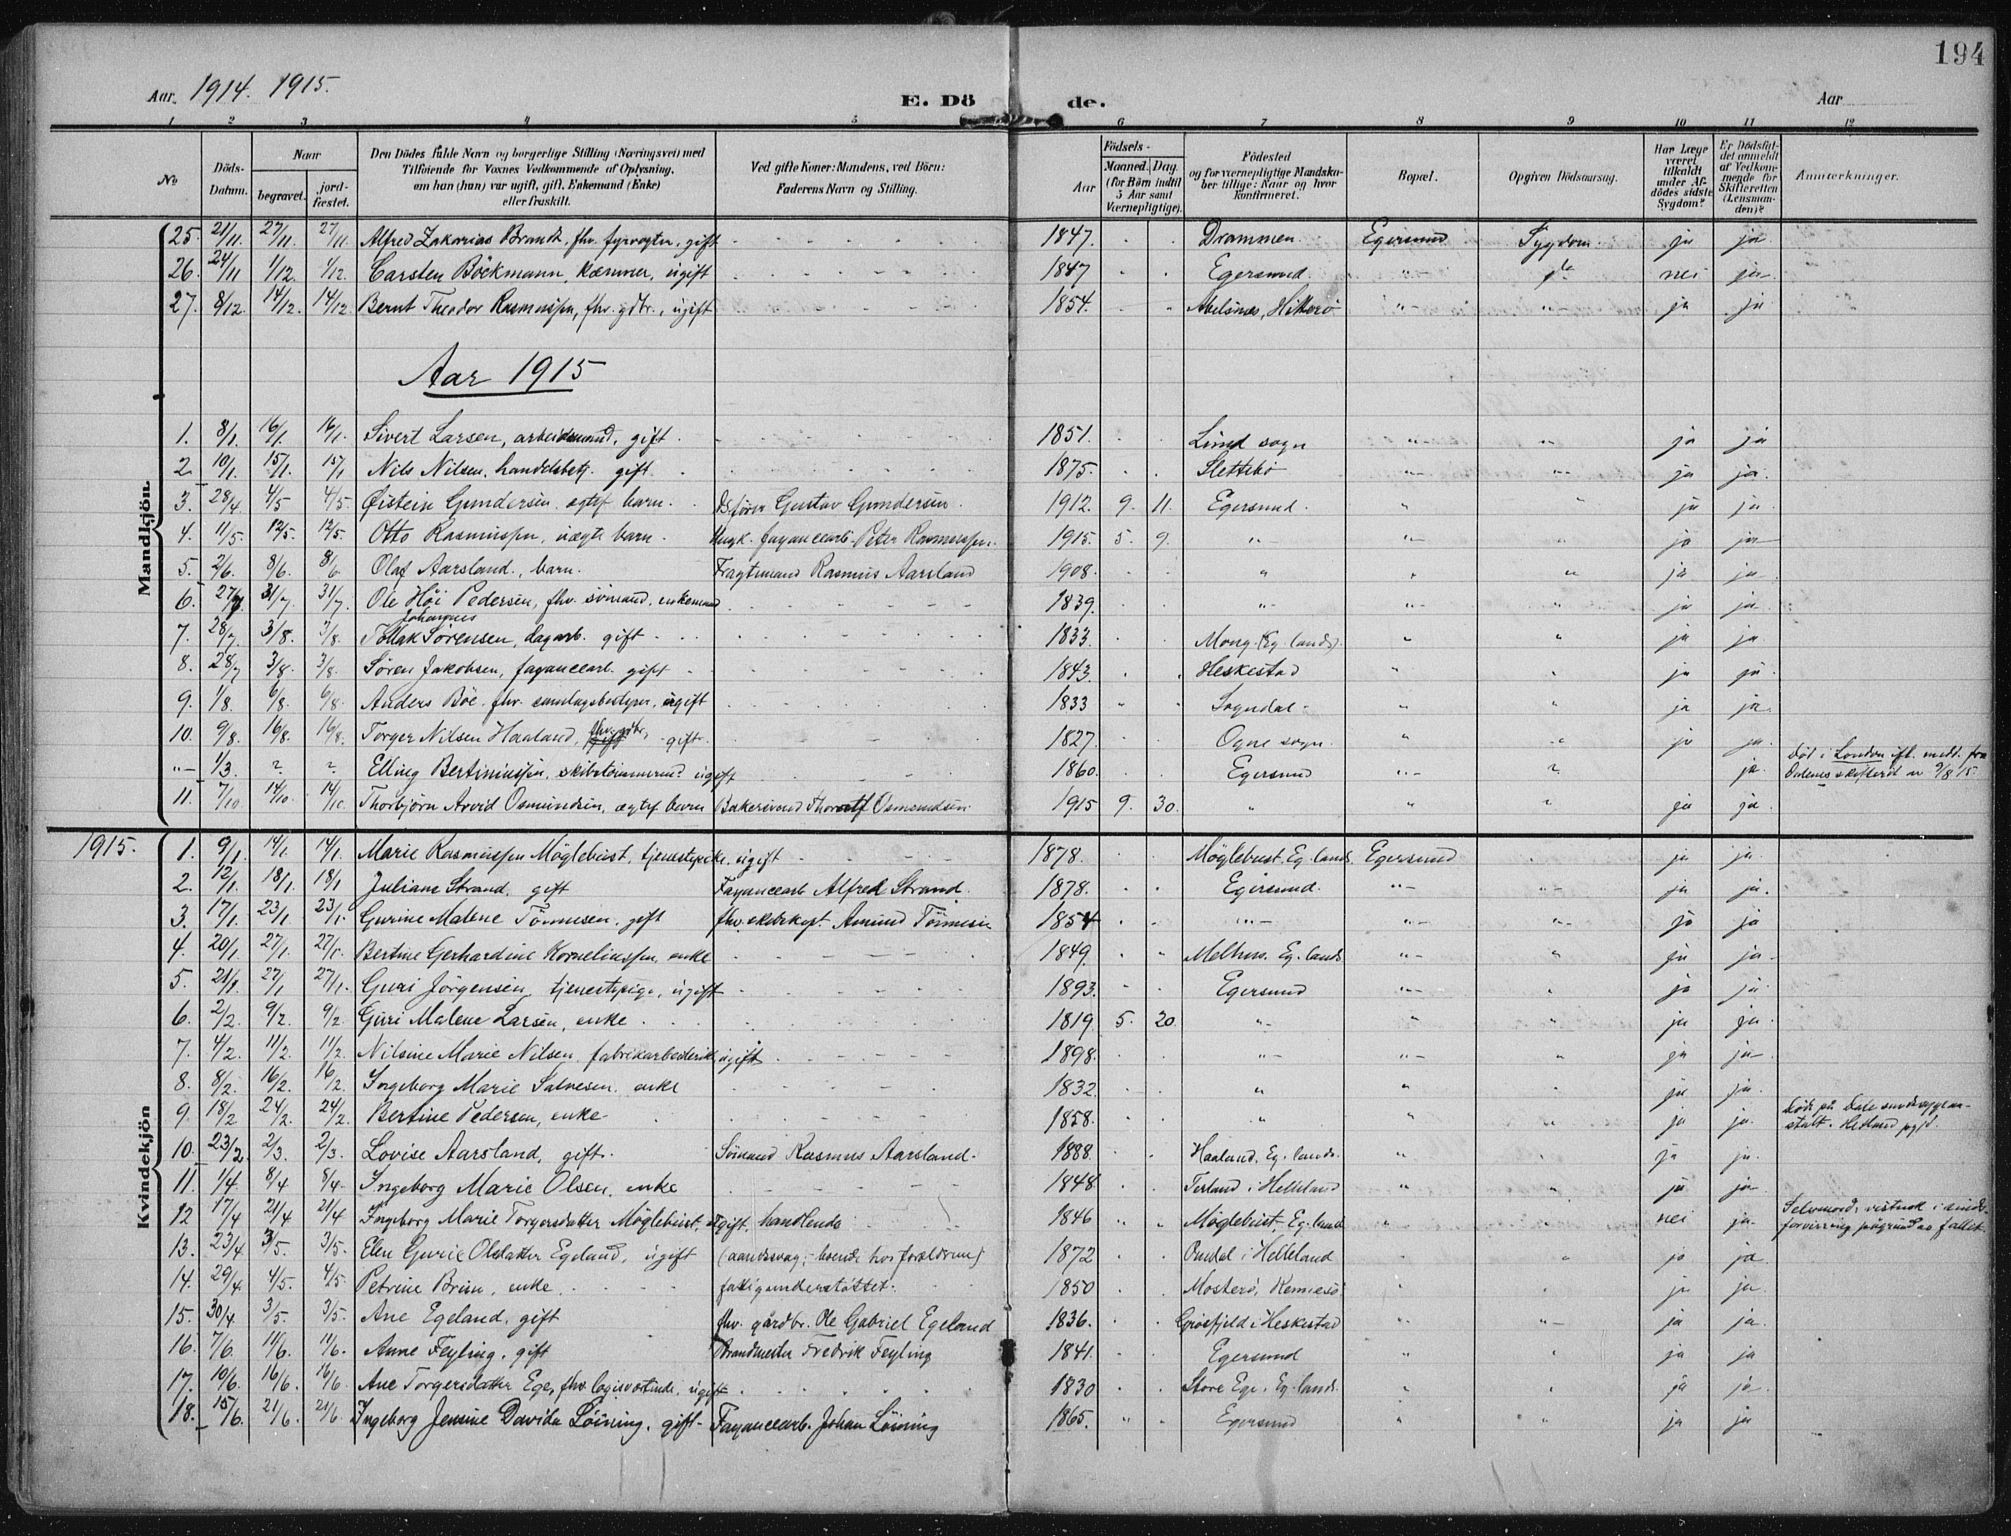 194
Aar 1914. 1915.
E. Döde.
Aar
1 2 3 4 5 6 7 8 9 10 11 12
No | Döds-Datum. | Naar begravet. | Naar jordfæstet. | Den Dödes fulde Navn og borgerlige Stilling (Næringsvei) med Tilföiende for Voxnes Vedkommende af Oplysning, om han (hun) var ugift, gift, Enkemand (Enke) eller fraskilt. | Ved gifte Koner: Mandens, ved Börn: Faderens Navn og Stilling. | Födsels- Aar | Maaned. Dag. (for Börn indtil 5 Aar samt Værnepligtige). | Födested og for værnepligtige Mandskaber tillige: Naar og hvor konfirmeret. | Bopæl. | Opgiven Dödsaarsag. | Har Læge været tilkaldt under Afdödes sidste Sygdom? | Er Dödsfaldet anmeldt af Vedkommende for Skifteretten (Lensmanden)? | Anmærkninger.
Mandkjön.
25. 21/11. 27/11. 27/11. Alfred Zakarias Brandt, fhv. fyrvogter, gift 1847. Drammen Egersund Sygdom ja ja
26. 24/11 1/12. 1/12. Carsten Böckmann, kæmner, ugift 1847 Egersund. "- do nei ja
27. 8/12. 14/12. 14/12. Bernt Theodor Rasmussen, fhv. gdbr., ugift 1854. Abelsnæs, Hitterö "- "- ja ja
Aar 1915
1. 8/1. 16/1. 16/1. Sivert Larsen, arbeidsmand, gift 1851. Lund sogn "- " ja ja
2. 10/1. 15/1. 15/1 Nils Nilsen, handelsbetj. gift 1875. Slettebö "- "- ja ja.
3. 28/4. 4/5 4/5. Øistein Gundersen, egtef. barn. Gustav Gundersen. 1912. 9. 11. Egersund. " " ja ja.
4. 11/5. 12/5. 12/5. Otto Rasmussen, uægte barn. Ungk. fayancearb. Peter Rasmussen. 1915. 5. 9. "- "- " ja ja
5. 2/6. 8/6. 8/6. Olaf Aarsland, barn. Fragtemand Rasmus Aarsland 1908. " " " ja ja
6. 27/7 31/7 31/7. Ole Höi Pedersen, fhv. sömand, enkemand 1839. "- "- " ja ja.
7. 28/7. 3/8. 3/8. Tollak Johannes Sörensen, dagarb. gift 1833. Mong (Eg. lands). " " ja ja
8. 28/7 3/8. 3/8. Sören Jakobsen, fayancearb. gift 1843. Heskestad " " ja ja.
9. 1/8. 6/8. 6/8. Anders Böe, fhv. samlagsbestyrer, ugift 1833 Sogndal. " " ja ja.
10. 9/8. 16/8. 16/8. Torger Nilsen Haaland, fhv. gdbr., gift. 1827. Ogne sogn. " " ja ja.
"- 1/3. ? ? Elling Bertiniussen, skibstömmermd. ugift 1860. Egersund "- ? ja. Död i London ifl. medd. fra Dalenes skifteret av 9/8 15.
11. 7/10. 14/10. 14/10. Thorbjörn Arvid Osmundsen, egtef. barn Bakersvend Thoralf Osmundsen 1915 9. 30. " " " ja ja.
Kvindekjön
1915. 1. 9/1. 14/1. 14/1. Marie Rasmussen Möglebust, tjenestepike, ugift 1878. Möglebust. Eg. lands. Egersund ja ja.
2. 12/1. 18/1. 18/1 Juliane Strand, gift Fayancearb Alfred Strand. 1878. Egersund. "- "- ja ja.
3. 17/1. 23/1. 23/1. Gurine Malene Tönnesen, gift fhv. skibskapt. Amund Tönnesen 1854 "- "- "- ja ja
4. 20/1. 27/1. 27/1. Bertine Gerhardine Korneliussen, enke 1849. Melhus. Eg. lands "- " ja ja
5. 21/1. 27/1 27/1. Guri Jörgensen, tjenestepige, ugift 1893. Egersund "- " ja ja.
6. 2/2. 9/2. 9/2. Guri Malene Larsen, enke 1819. 5. 20. "- " " ja ja.
7. 4/2. 11/2. 11/2. Nilsine Marie Nilsen, fabrikarbeiderske, ugift 1898. "- "- " ja ja
8. 8/2. 16/2. 16/2. Ingeborg Marie Salvesen, enke 1832. " " ja ja
9. 18/2 24/2. 24/2. Bertine Pedersen, enke 1858. " " ja ja. Död på Dale sindssygeanstalt. Hetland pgjd.
10. 23/2 2/3. 2/3. Lovise Aarsland, gift. Sömand Rasmus Aarsland. 1888. Haaland, Eg. lands. " " ja ja.
11. 1/4. 8/4 8/4. Ingeborg Marie Olsen, enke 1848. Terland i Helleland " " ja ja
12 17/4 21/4 21/4 Ingeborg Marie Torgersdatter Möglebust, ugift, handlende 1846 Möglebust. Eg. land " " nei ja. Selvmord, vistnok i sindsforvirring
13. 23/4 3/5. 3/5. Elen Gurie Olsdatter Egeland, ugift (aandssvag, boende hos forældrene) 1872 Omdal i Helleland " " ja ja
14. 29/4. 4/5. 4/5. Petrine Bruu, enke fattigunderstöttet. 1850 Mosterö, Rennesö " " ja ja.
15. 30/4. 3/5. 3/5. Ane Egeland, gift fhv. gårdbr. Ole Gabriel Egeland 1836. Grösfjeld i Heskestad " "- ja ja.
16. 7/6. 11/6. 11/6. Anne Feyling, gift Brandmester Fredrik Feyling 1841. Egersund " " ja ja
17. 10/6. 16/6. 16/6. Ane Torgersdatter Ege, fhv. logisvertinde, ugift 1830 Store Ege. Eg. lands. " " ja ja.
18. 15/6. 21/6. 21/6 Ingeborg Jensine Davida Löining, gift Fayancearb. Johan Löining 1865. Egersund " " ja ja